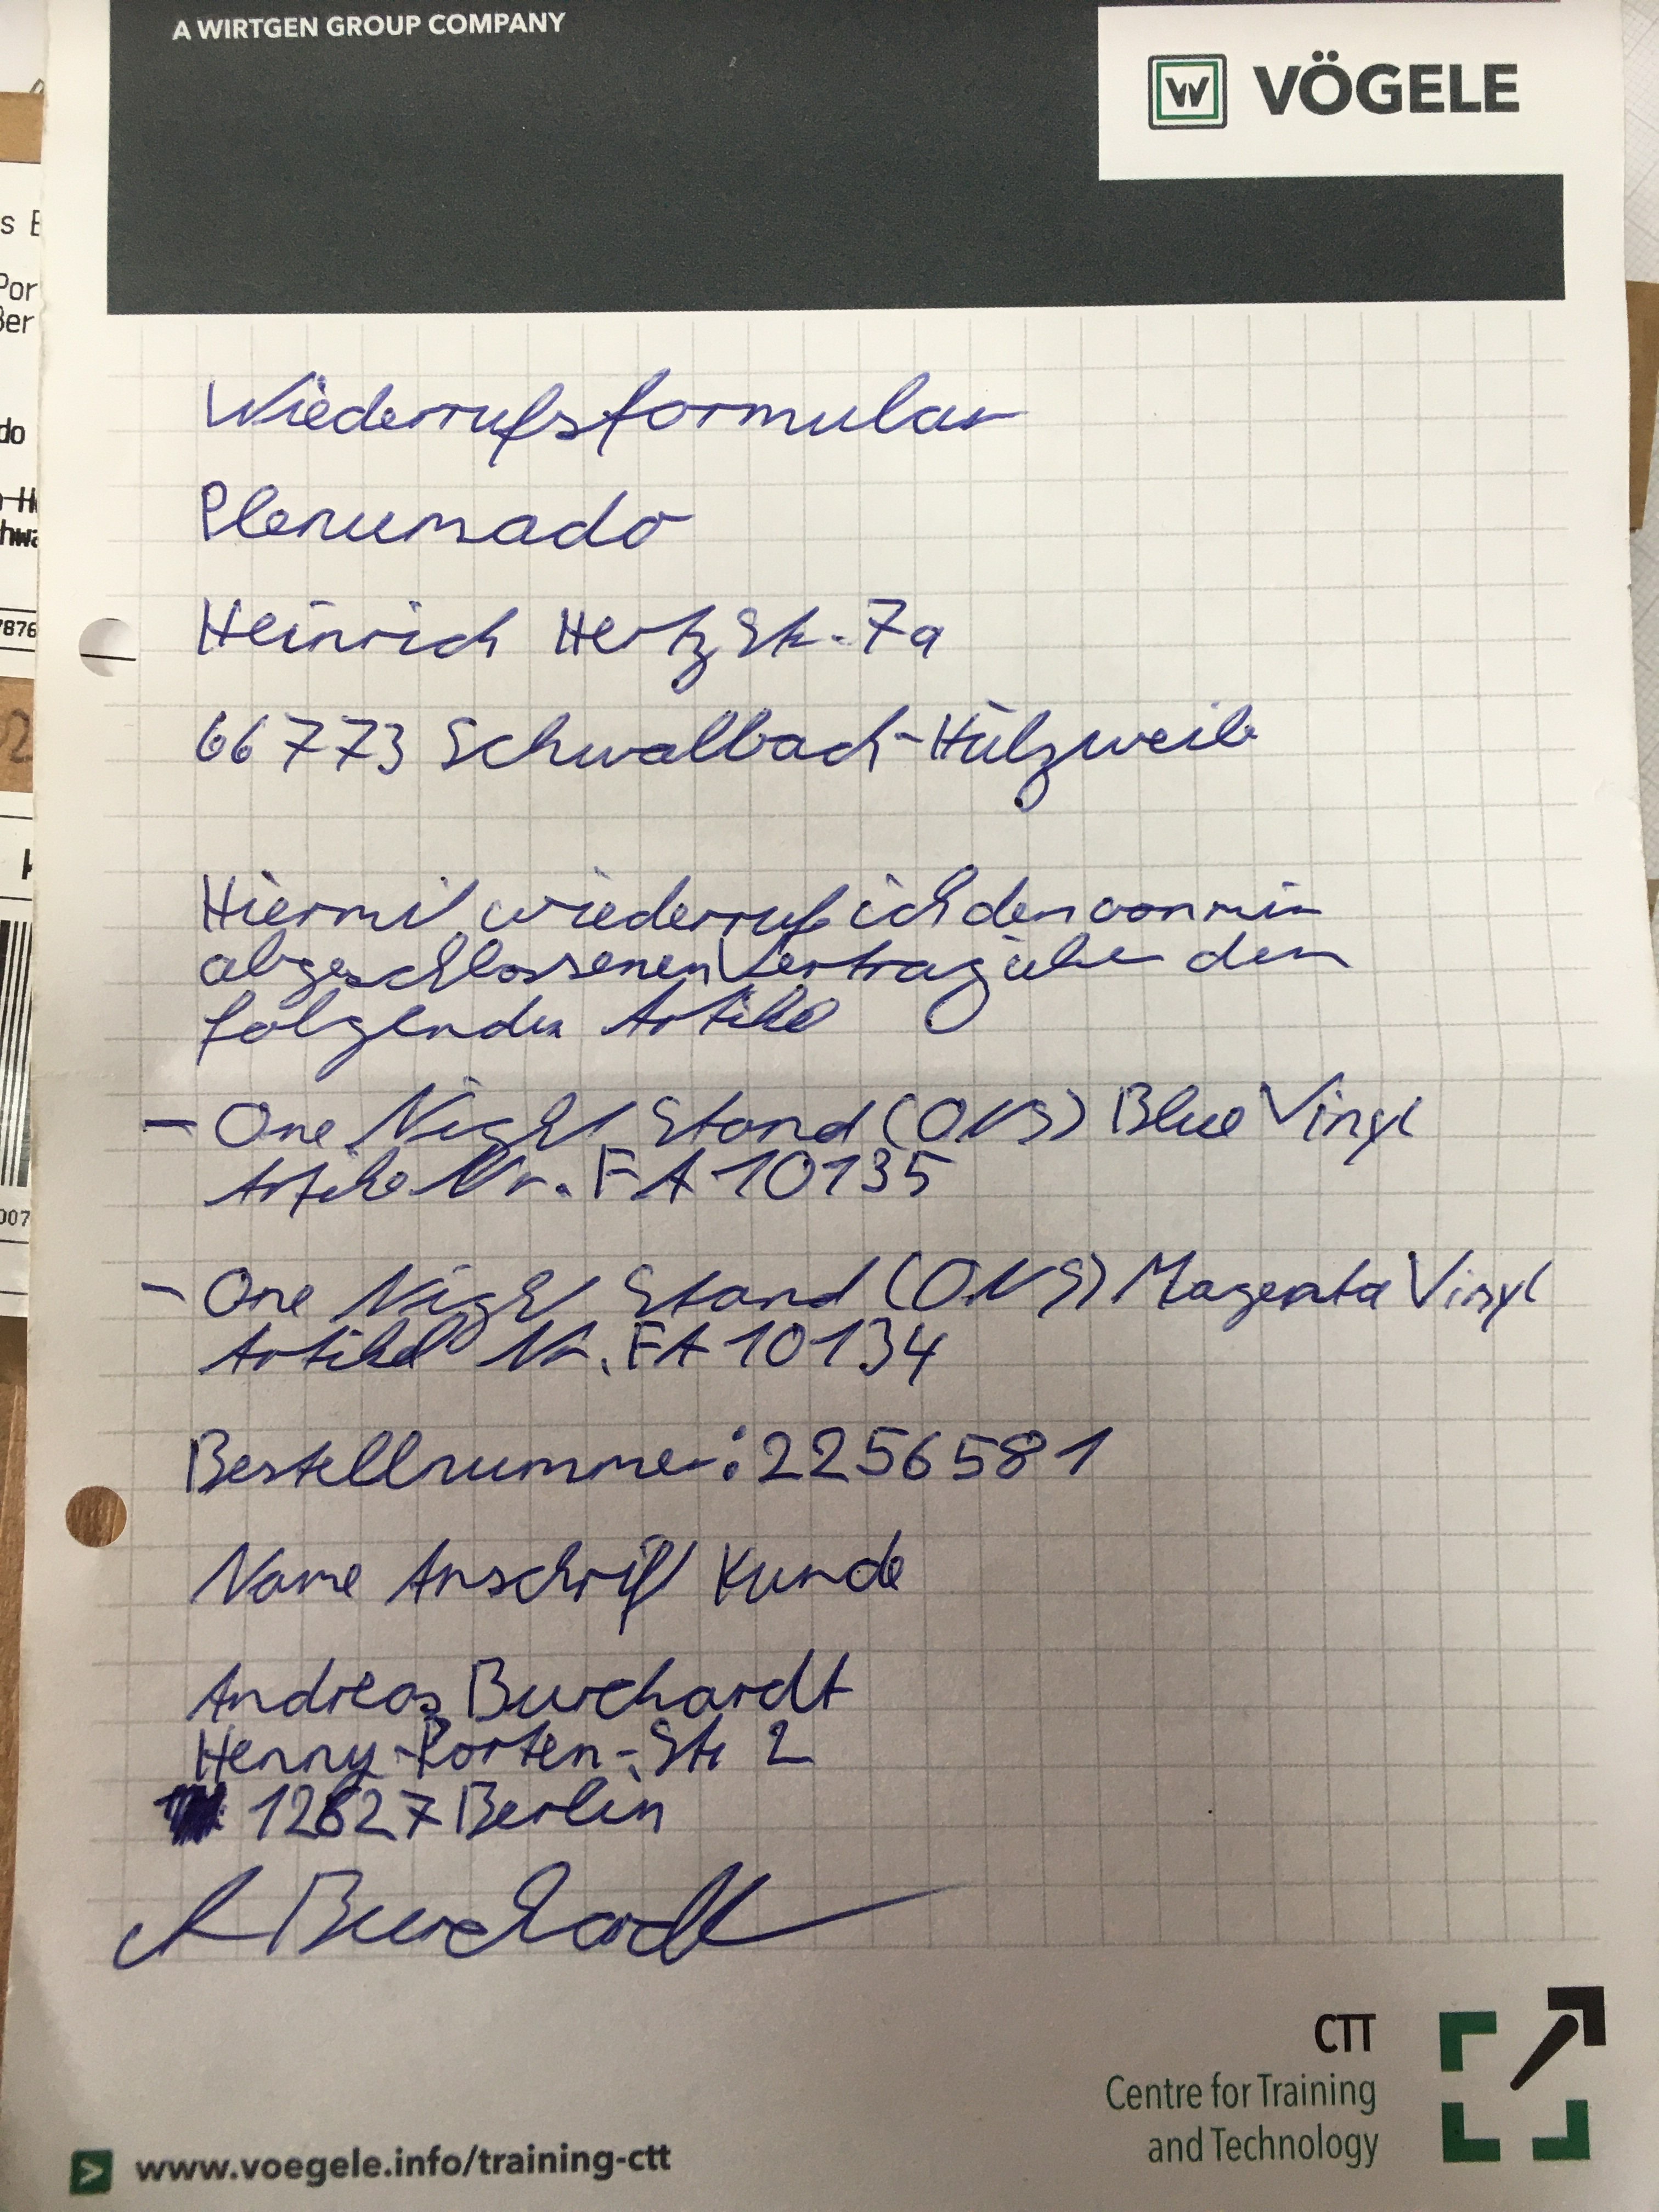 A WIRTGEN GROUP COMPANY
W VÖGELE
Wiederrufsformular
Plenumado
Heinrich Hertz Str. 7a
66773 Schwalbach-Hülzweile
Hiermit wiederruf ich den von mir
abgeschlossenen Vertrag über den
folgenden Artikel
- One Night Stand (ONS) Blue Vinyl
Artikel Nr. FA10135
- One Night Stand (ONS) Magenta Vinyl
Artikel Nr. FA10134
Bestellnummer: 2256581
Name Anschrift Kunde
Andreas Burchardt
Henny-Porten-Str 2
12627 Berlin
A Burchardt
CTT
Centre for Training
and Technology
> www.voegele.info/training-ctt